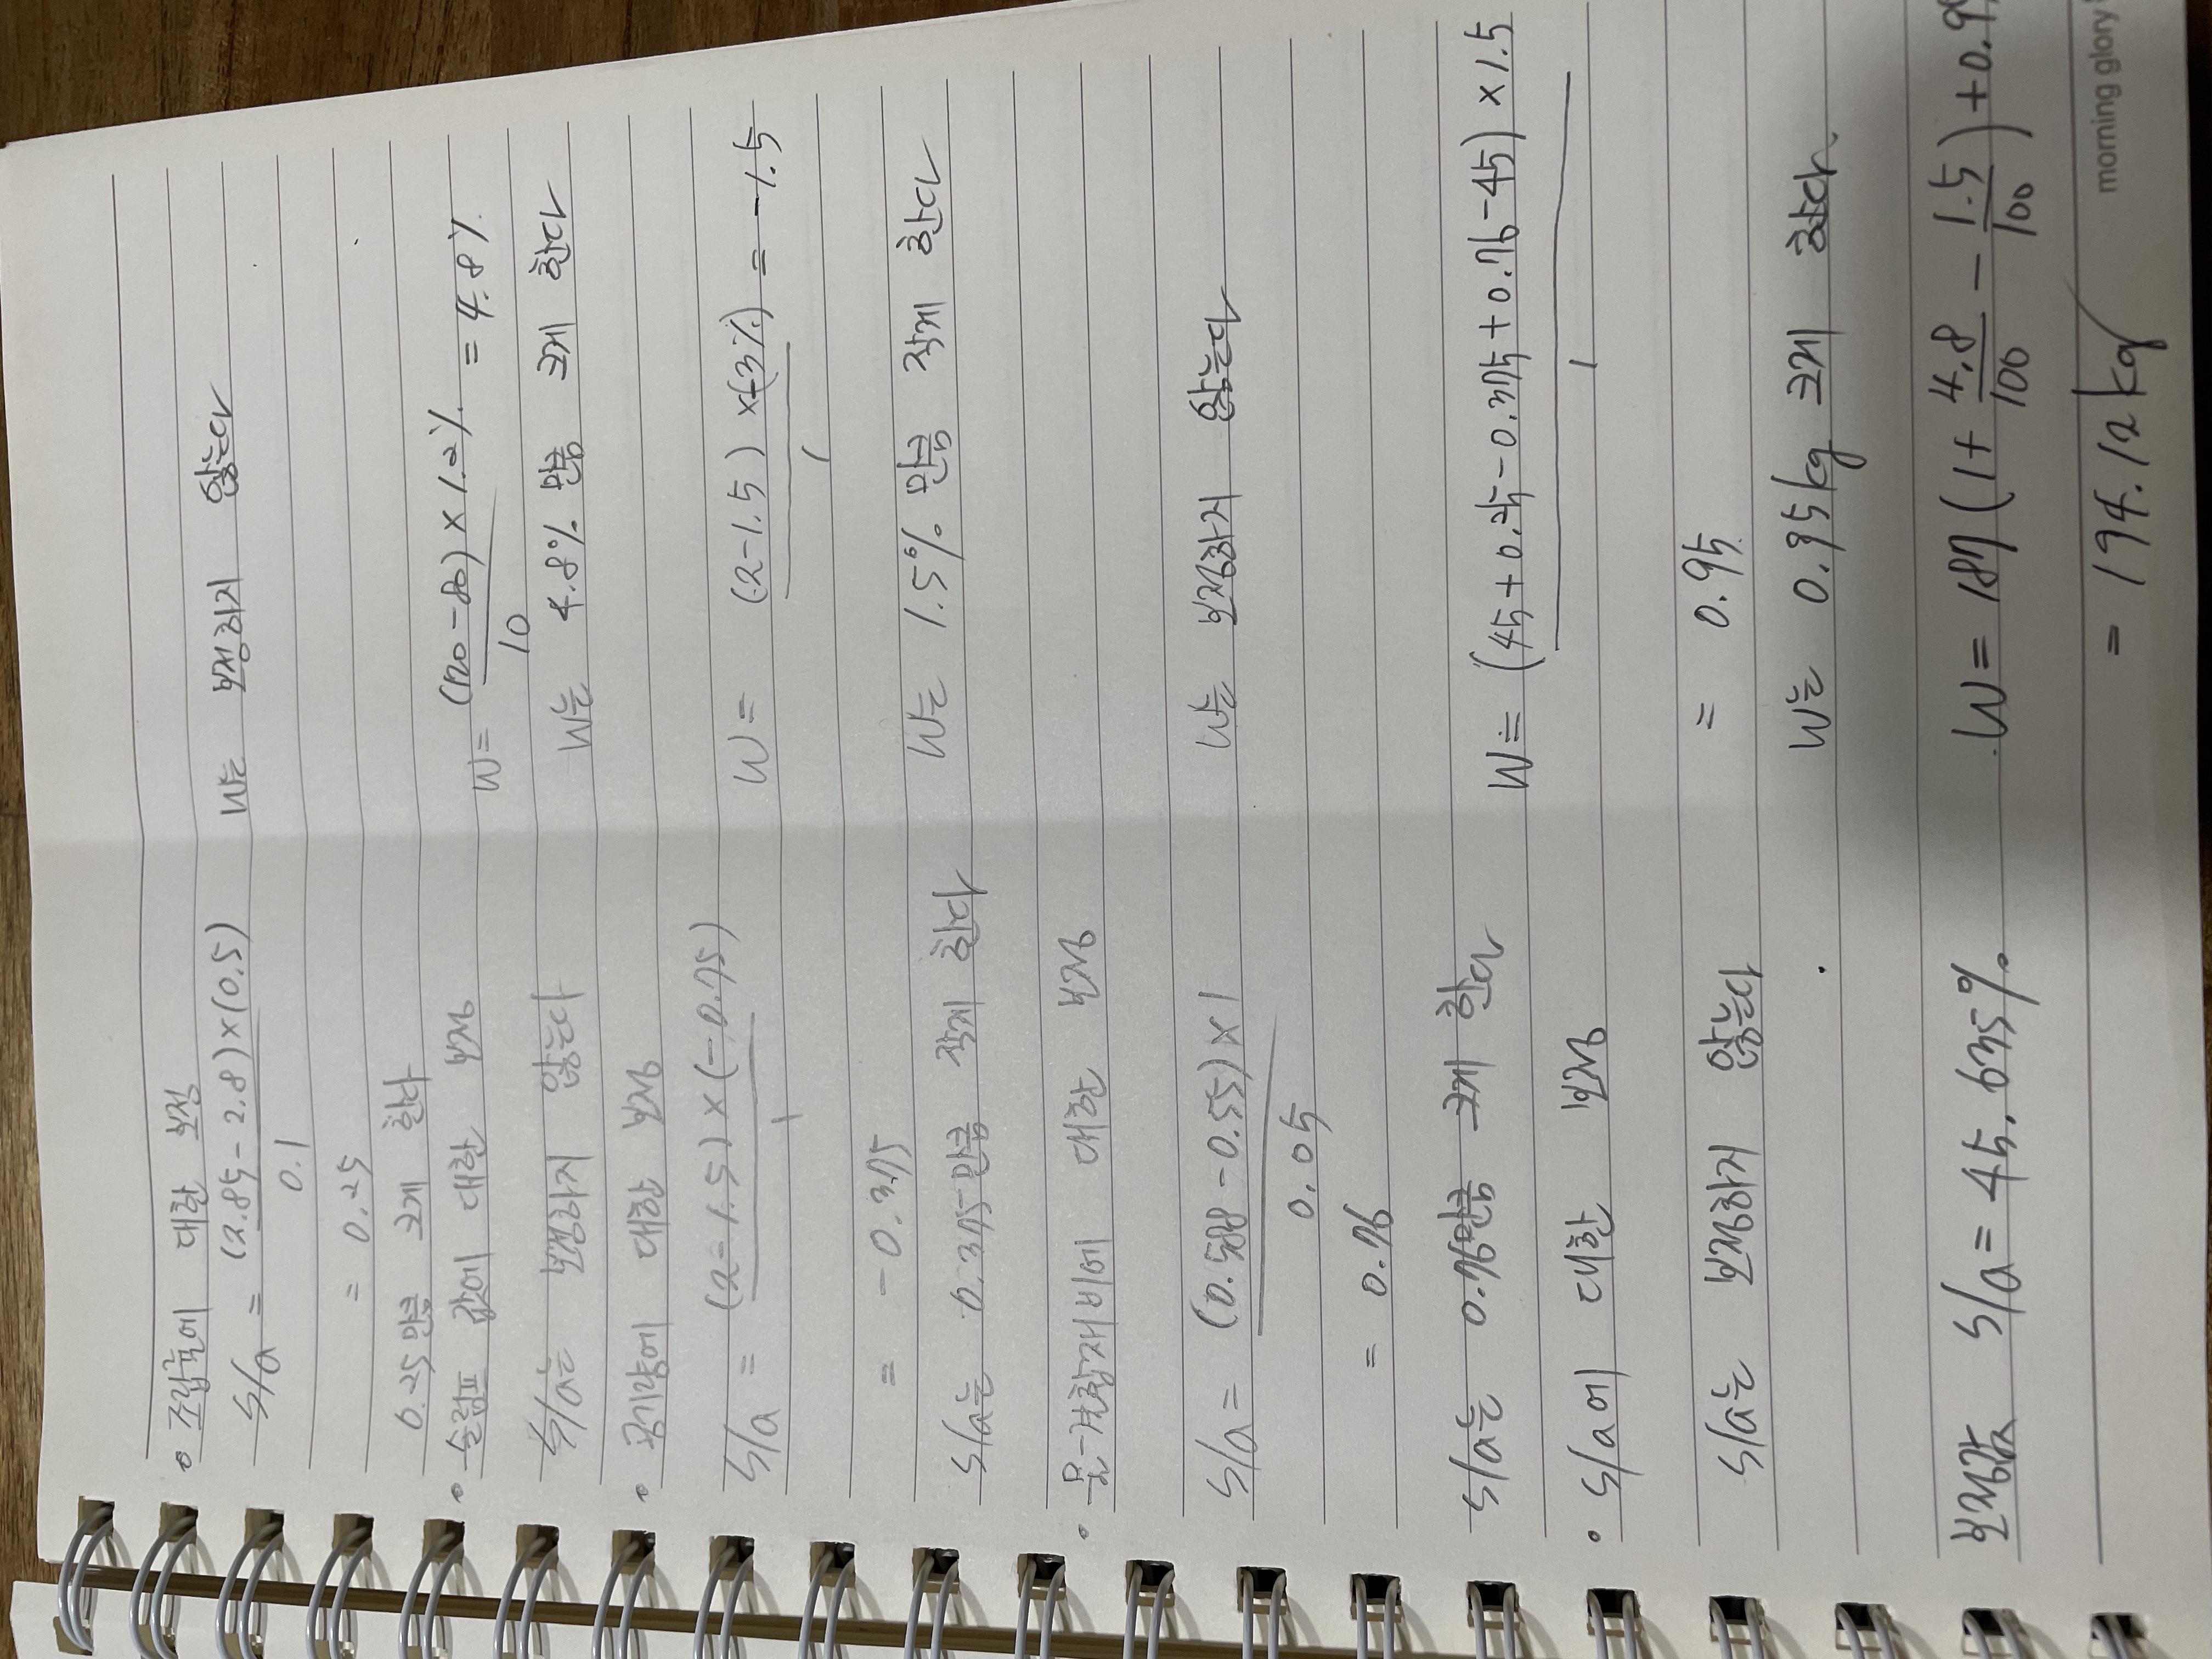 • 조립률에 대한 보정
S/a = (2.85-2.8)×(0.5) W는 보정하지 않는다
0.1
= 0.25
0.25만큼 크게 한다
• 슬럼프 값에 대한 보정 W= (120-80)×1.2% = 4.8%
10
S/a는 보정하지 않는다 W는 4.8% 만큼 크게 한다
• 공기량에 대한 보정
S/a = (2-1.5)×(-0.75) W= (2-1.5)×(-3%) = -1.5
1 1
= -0.375
S/a는 0.375만큼 작게 한다 W는 1.5% 만큼 작게 한다
• 물-결합재비에 대한 보정
S/a = (0.588-0.55)×1 W는 보정하지 않는다
0.05
= 0.76
S/a는 0.76만큼 크게 한다 W= (45+0.25-0.375+0.76-45)×1.5
• S/a에 대한 보정 1
S/a는 보정하지 않는다 = 0.95
W는 0.95kg 크게 한다
보정값 S/a = 45.635% W= 187(1+ 4.8/100 - 1.5/100)+0.9
= 194.12kg
morning glory